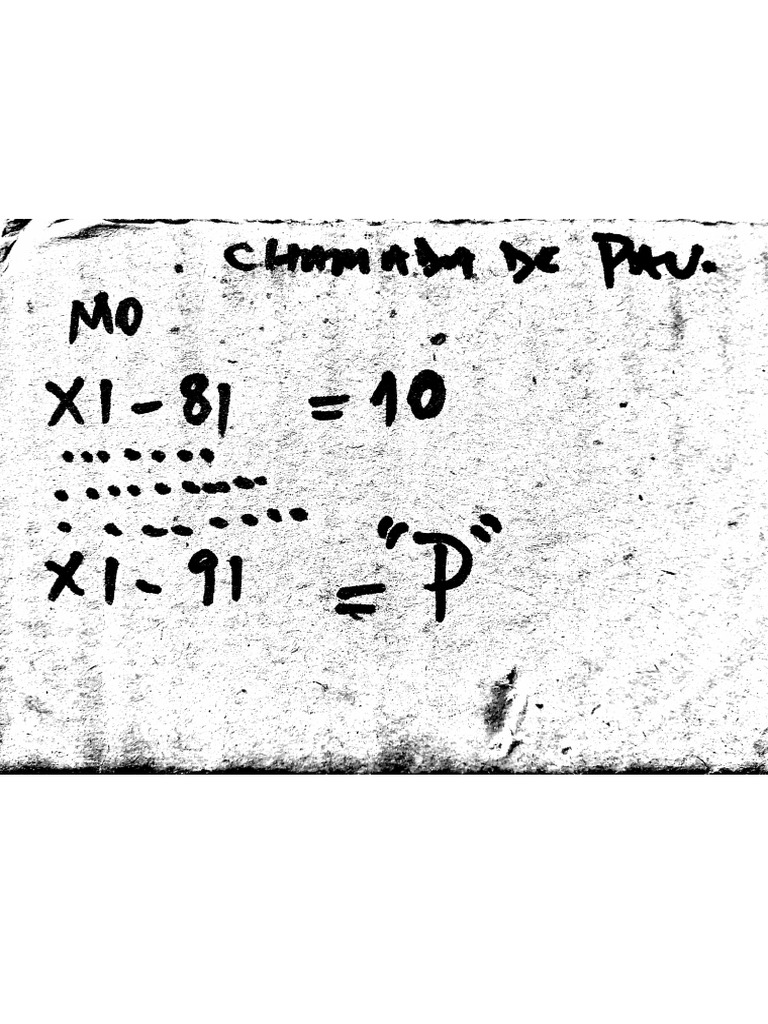 CHAMADA DE PAU.
MO
X1-81 = 10
X1-91 = "P"